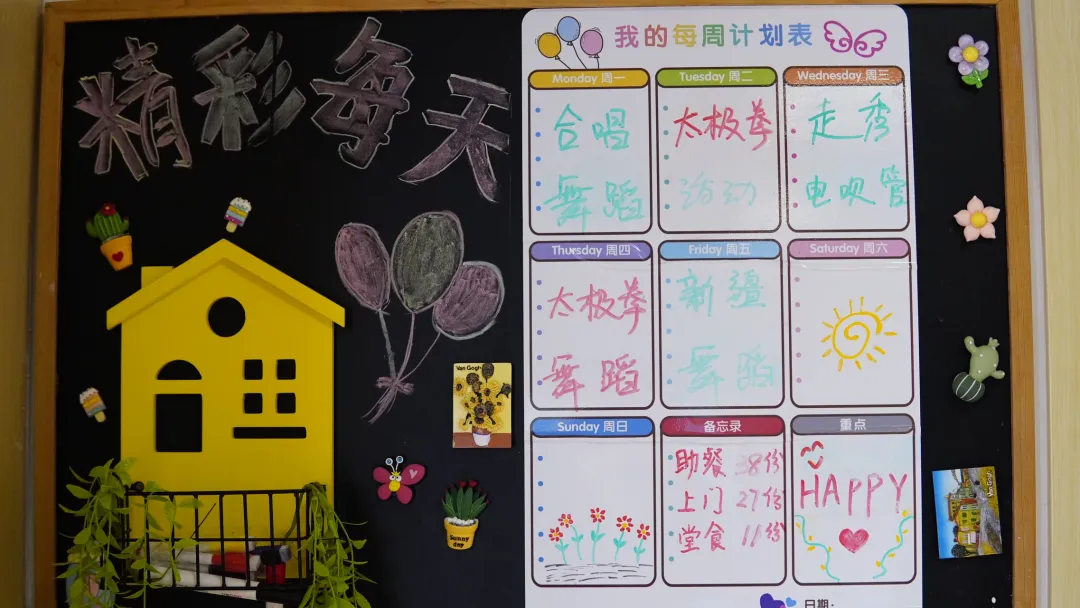 精彩每天
我的每周计划表
Monday 周一
合唱
舞蹈
Tuesday 周二
太极拳
活动
Wednesday 周三
走秀
电吹管
Thursday 周四
太极拳
舞蹈
Friday 周五
新疆
舞蹈
Saturday 周六
Sunday 周日
备忘录
助餐 38份
上门 27份
堂食 11份
重点
HAPPY
日期:
Van Gogh
Sunny day
Van Gogh